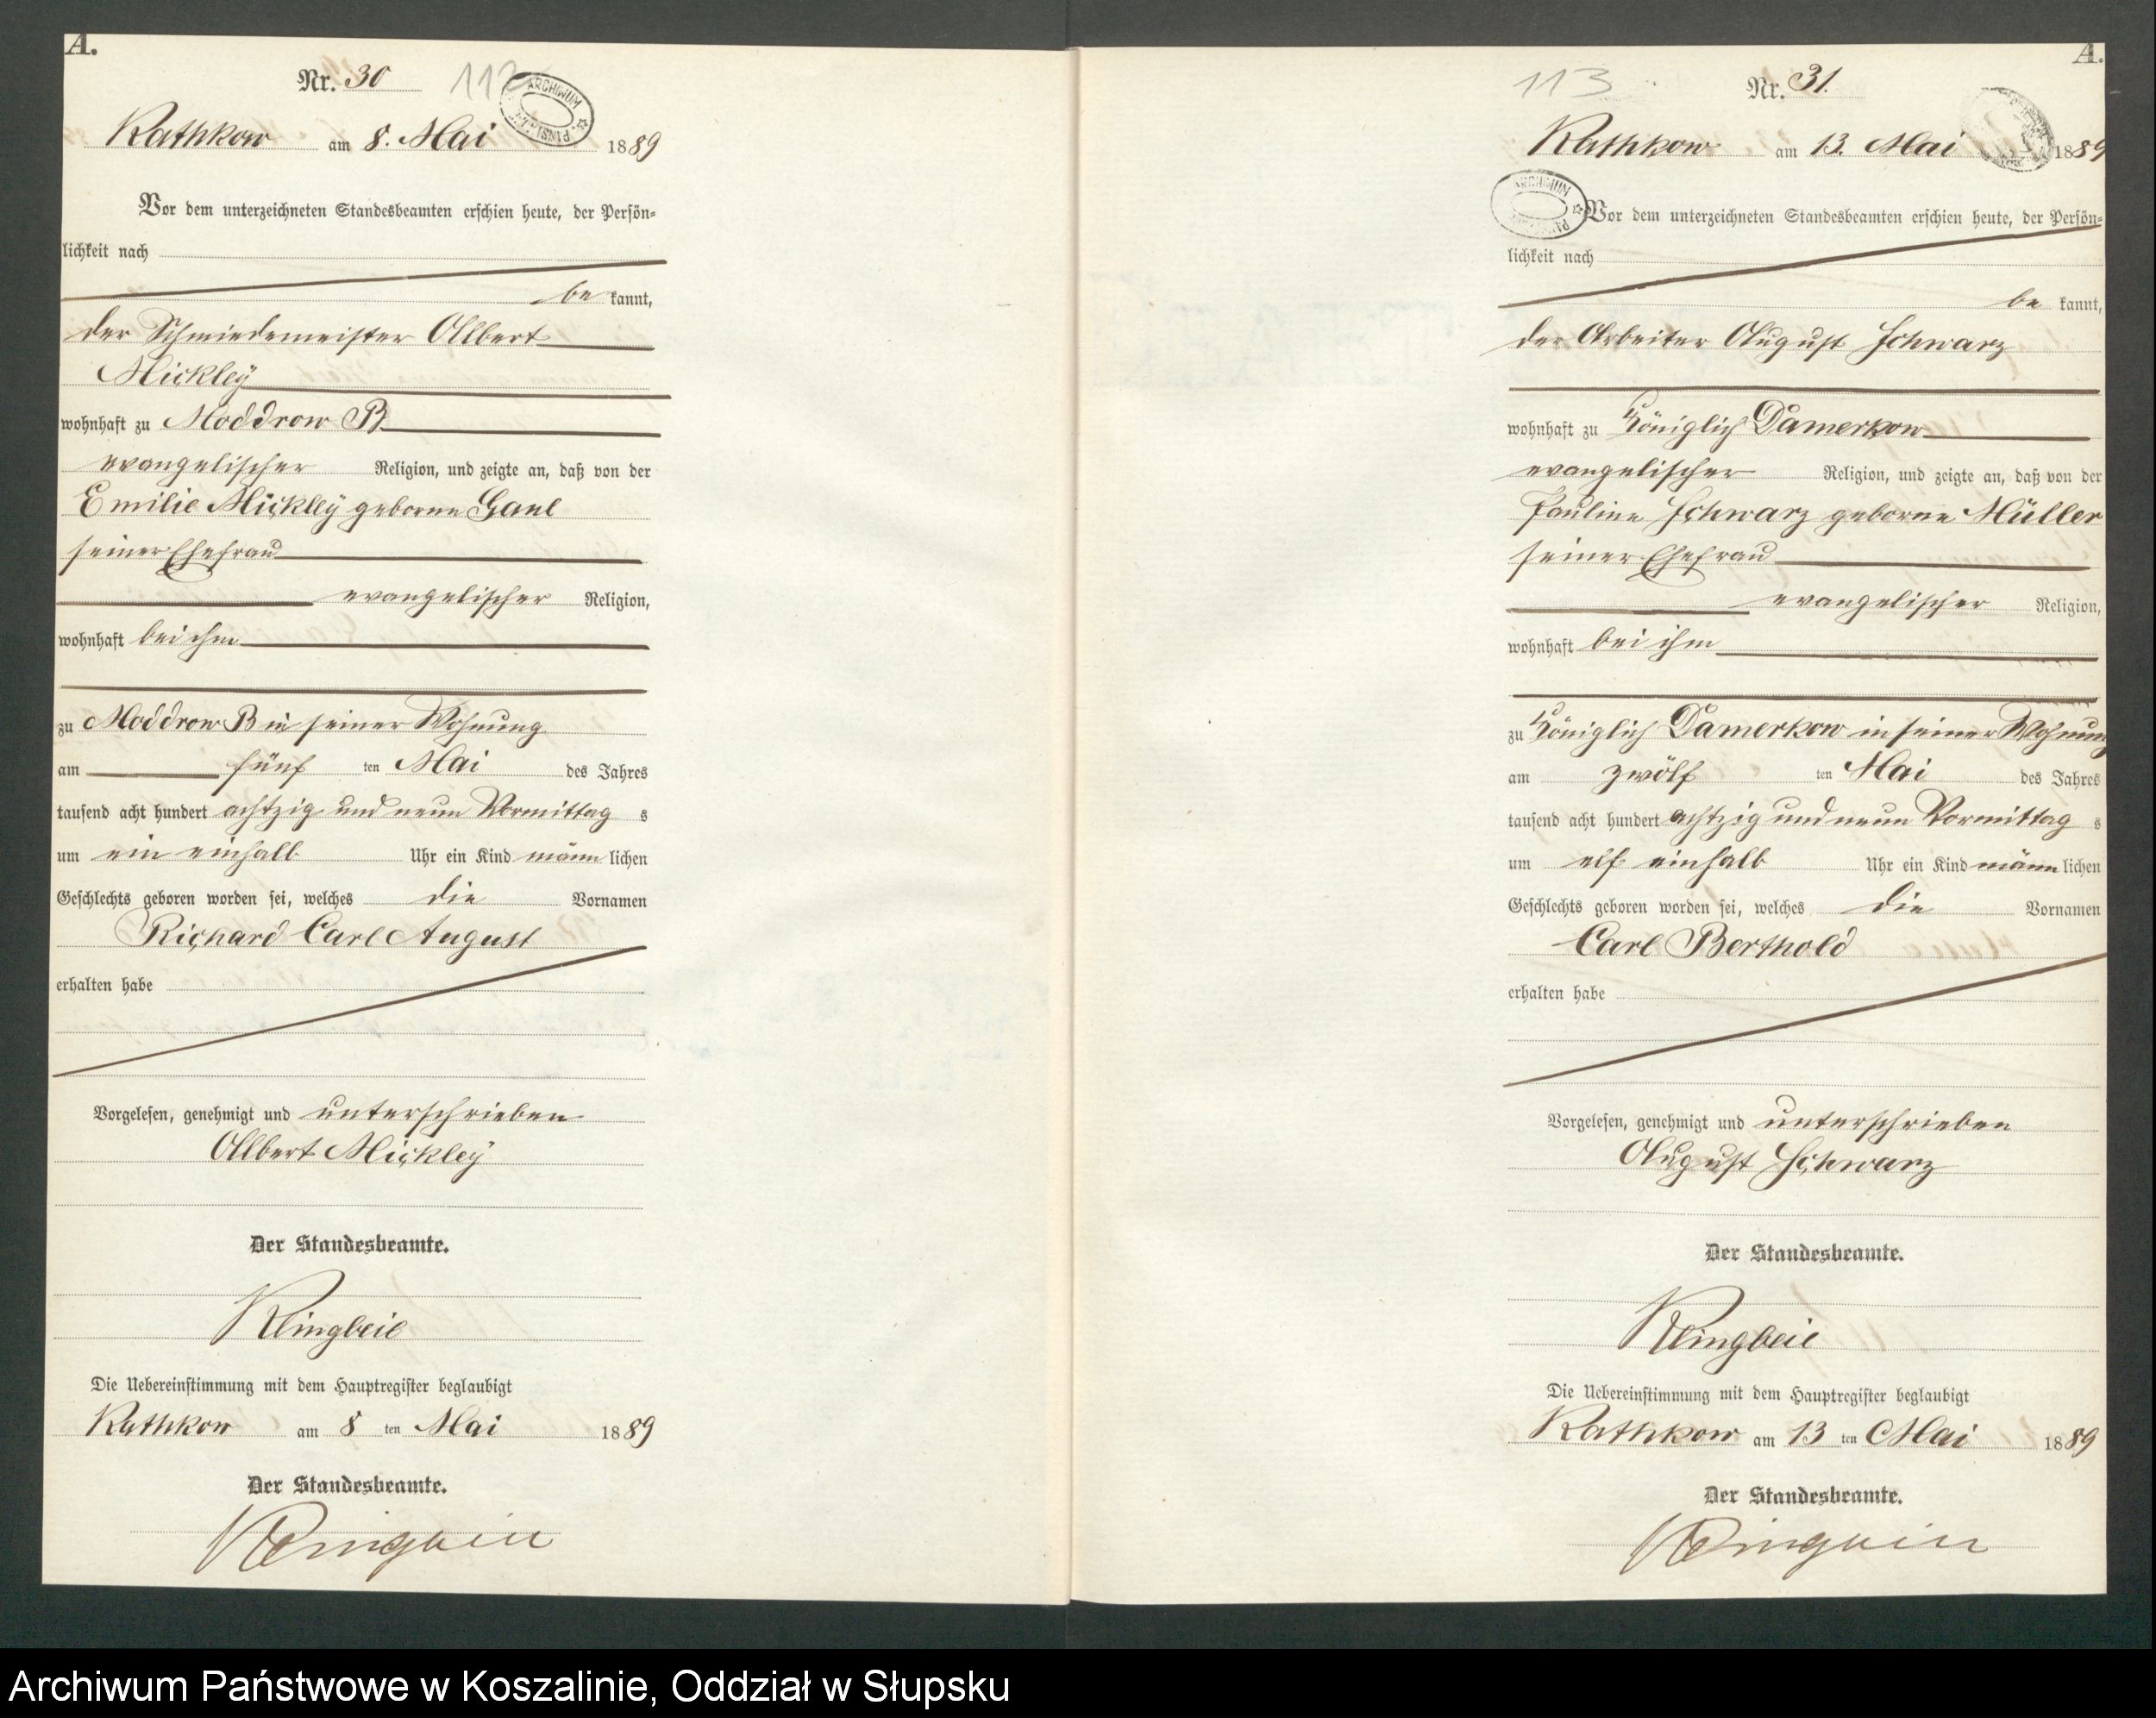 A.
Nr. 30 112
ARCHIWUM PAŃSTW
Rathkow am 8. Mai 1889
Vor dem unterzeichneten Standesbeamten erschien heute, der Persön=
lichkeit nach
be kannt,
der Schmiedemeister Albert
Mickley
wohnhaft zu Moddrow B
evangelischer Religion, und zeigte an, daß von der
Emilie Mickley geborne Gaul
seiner Ehefrau
evangelischer Religion,
wohnhaft bei ihm
zu Moddrow B in seiner Wohnung
am fünf ten Mai des Jahres
tausend acht hundert achtzig und neun Vormittag s
um ein einhalb Uhr ein Kind männ lichen
Geschlechts geboren worden sei, welches die Vornamen
Richard Carl August
erhalten habe
Vorgelesen, genehmigt und unterschrieben
Albert Mickley
Der Standesbeamte.
Klingbeil
Die Uebereinstimmung mit dem Hauptregister beglaubigt
Rathkow am 8 ten Mai 1889
Der Standesbeamte.
Klingbeil
A.
113 Nr. 31.
Rathkow am 13. Mai 1889
ARCHIWUM
Vor dem unterzeichneten Standesbeamten erschien heute, der Persön=
lichkeit nach
be kannt,
der Arbeiter August Schwarz
wohnhaft zu Königlich Damerkow
evangelischer Religion, und zeigte an, daß von der
Pauline Schwarz geborne Müller
seiner Ehefrau
evangelischer Religion,
wohnhaft bei ihm
zu Königlich Damerkow in seiner Wohnung
am zwölf ten Mai des Jahres
tausend acht hundert achtzig und neun Vormittag s
um elf einhalb Uhr ein Kind männ lichen
Geschlechts geboren worden sei, welches die Vornamen
Carl Berthold
erhalten habe
Vorgelesen, genehmigt und unterschrieben
August Schwarz
Der Standesbeamte.
Klingbeil
Die Uebereinstimmung mit dem Hauptregister beglaubigt
Rathkow am 13 ten Mai 1889
Der Standesbeamte.
Klingbeil
Archiwum Państwowe w Koszalinie, Oddział w Słupsku